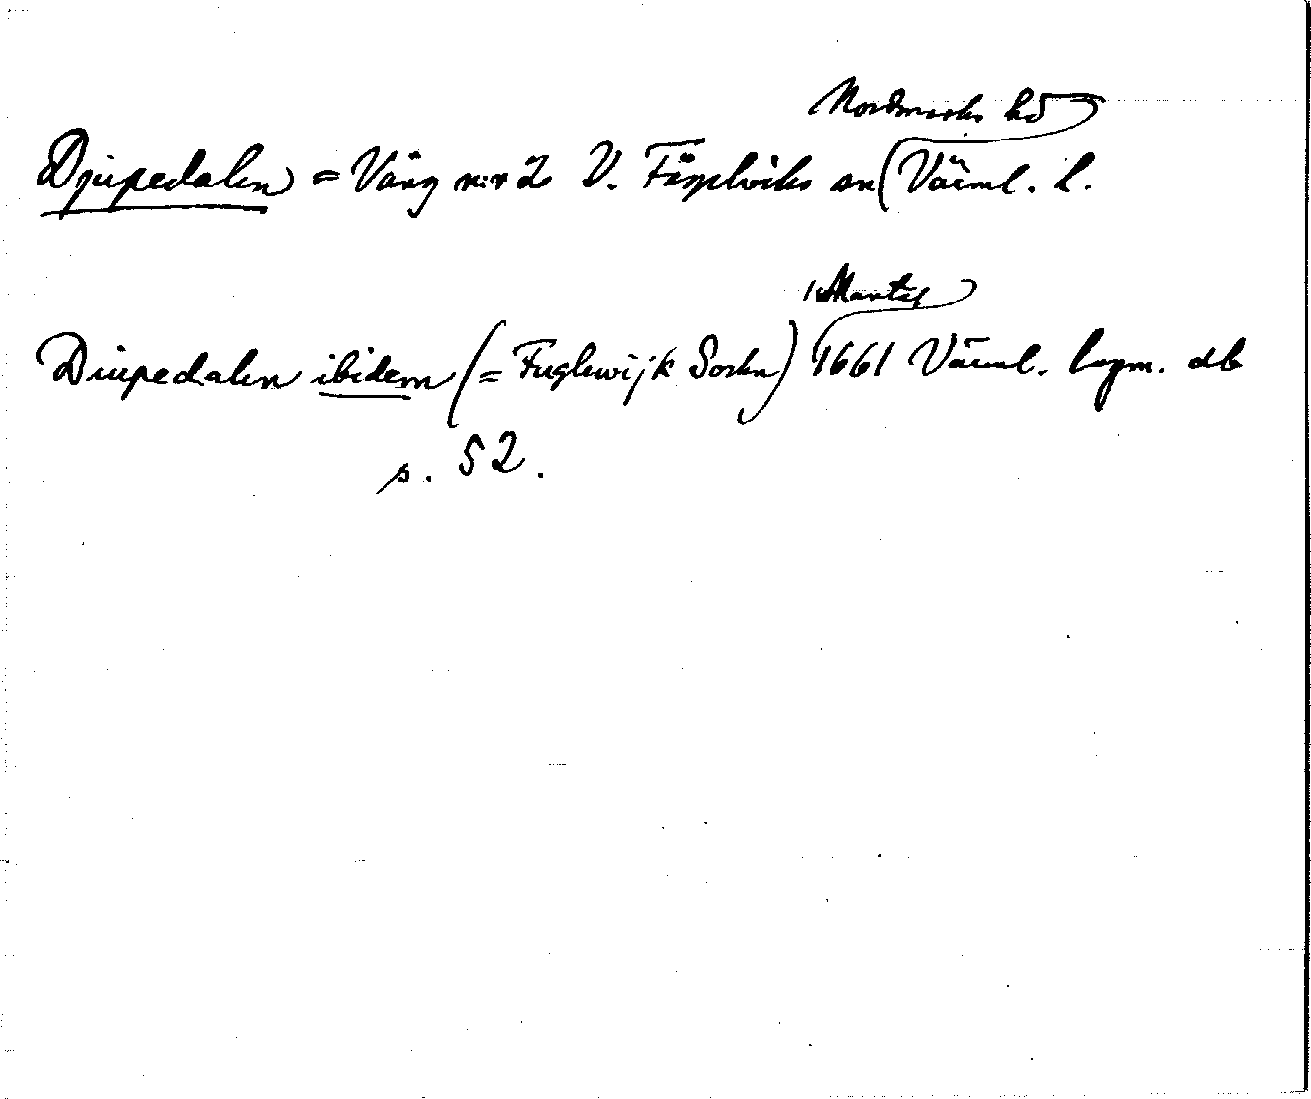 Nordmarks hd
Djupedalen = Väng n:r 2 V. Fågelviks sn (Värml. l.
1 Mantal
Diupedalen ibidem (= Fuglewijk Sochn) 1661 Värml. lagm. db
s. 52.